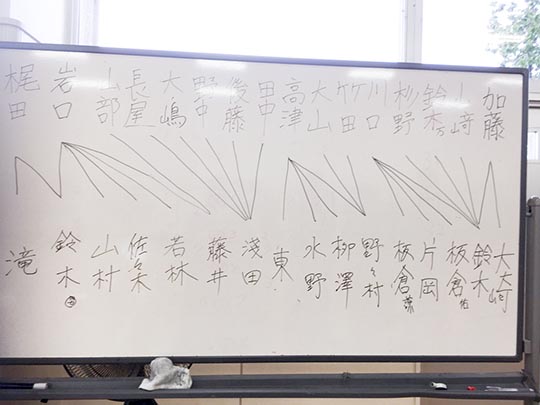 加藤
山崎
鈴木万
杉野
川口
竹田
大山
高津
田中
後藤
野中
大嶋
長屋
山部
岩口
梶田
大崎
鈴木
板倉佑
片岡
板倉
野々村
柳澤
水野
東
浅田
藤井
若林
佐々木
山村
鈴木
滝